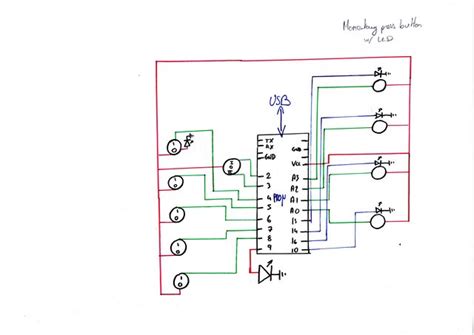 Momentary press button
w/ LED
USB
TX
RX
GND
GND
VCC
2
3
4
5
6
7
8
9
PROμ
A3
A2
A1
A0
15
14
16
10